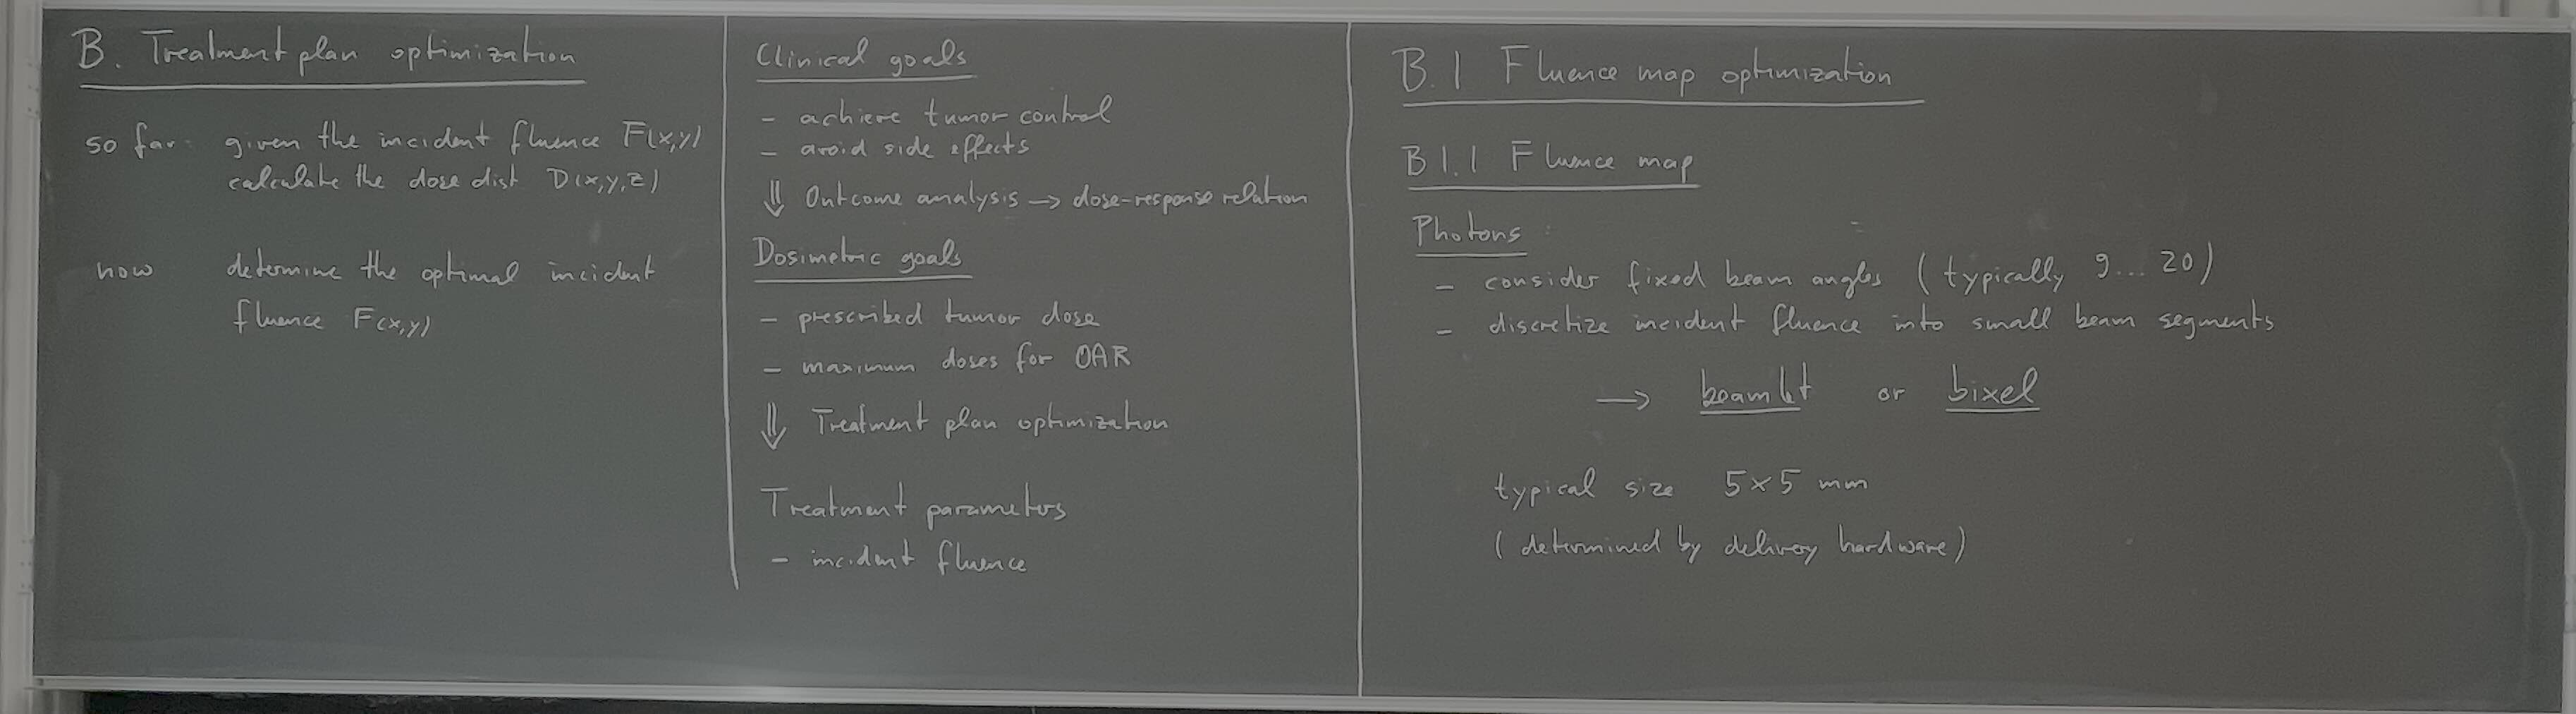 B. Treatment plan optimization
so far: given the incident fluence F(x,y)
calculate the dose dist D(x,y,z)
now determine the optimal incident
fluence F(x,y)
Clinical goals
- achieve tumor control
- avoid side effects
⇓ Outcome analysis → dose-response relation
Dosimetric goals
- prescribed tumor dose
- maximum doses for OAR
⇓ Treatment plan optimization
Treatment parameters
- incident fluence
B.1 Fluence map optimization
B1.1 Fluence map
Photons
- consider fixed beam angles (typically 9... 20)
- discretize incident fluence into small beam segments
→ beamlet or bixel
typical size 5×5 mm
(determined by delivery hardware)